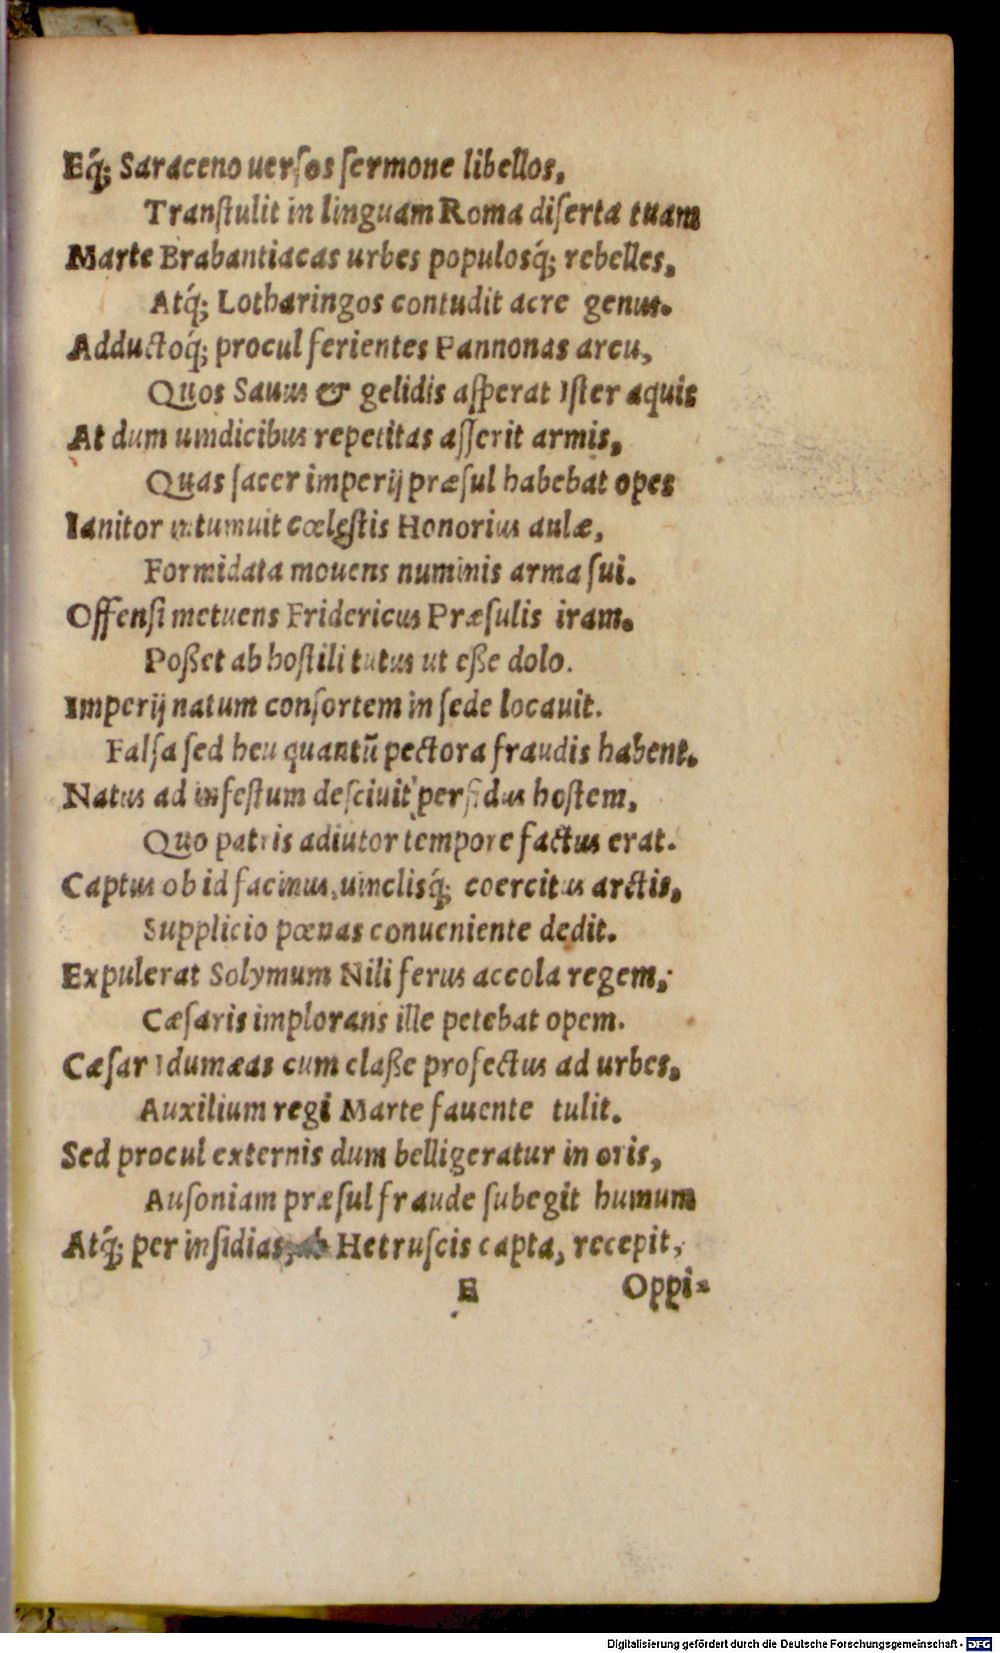 Eq́; Saraceno uerſos ſermone libellos,
Tranſtulit in linguam Roma diſerta tuam
Marte Brabantiacas urbes populosq́; rebelles,
Atq́; Lotharingos contudit acre genus.
Adductoq́; procul ferientes Pannonas arcu,
Quos Sauus & gelidis aſperat Iſter aquis
At dum uindicibus repetitas aſſerit armis,
Quas ſacer imperij præſul habebat opes
Ianitor intumuit cœleſtis Honorius aulæ,
Formidata mouens numinis arma ſui.
Offenſi metuens Fridericus Præſulis iram.
Poßet ab hoſtili tutus ut eße dolo.
Imperij natum conſortem in ſede locauit.
Falſa ſed heu quantũ pectora fraudis habent.
Natus ad infeſtum deſciuit perfidus hoſtem,
Quo patris adiutor tempore factus erat.
Captus ob id facinus, uinclisq́; coercitus arctis,
Supplicio pœnas conueniente dedit.
Expulerat Solymum Nili ferus accola regem,
Cæſaris implorans ille petebat opem.
Cæſar Idumæas cum claße profectus ad urbes,
Auxilium regi Marte fauente tulit.
Sed procul externis dum belligeratur in oris,
Auſoniam præſul fraude ſubegit humum
Atq́; per inſidias, ab Hetruſcis capta, recepit,
E Oppi-
Digitalisierung gefördert durch die Deutsche Forschungsgemeinschaft - DFG